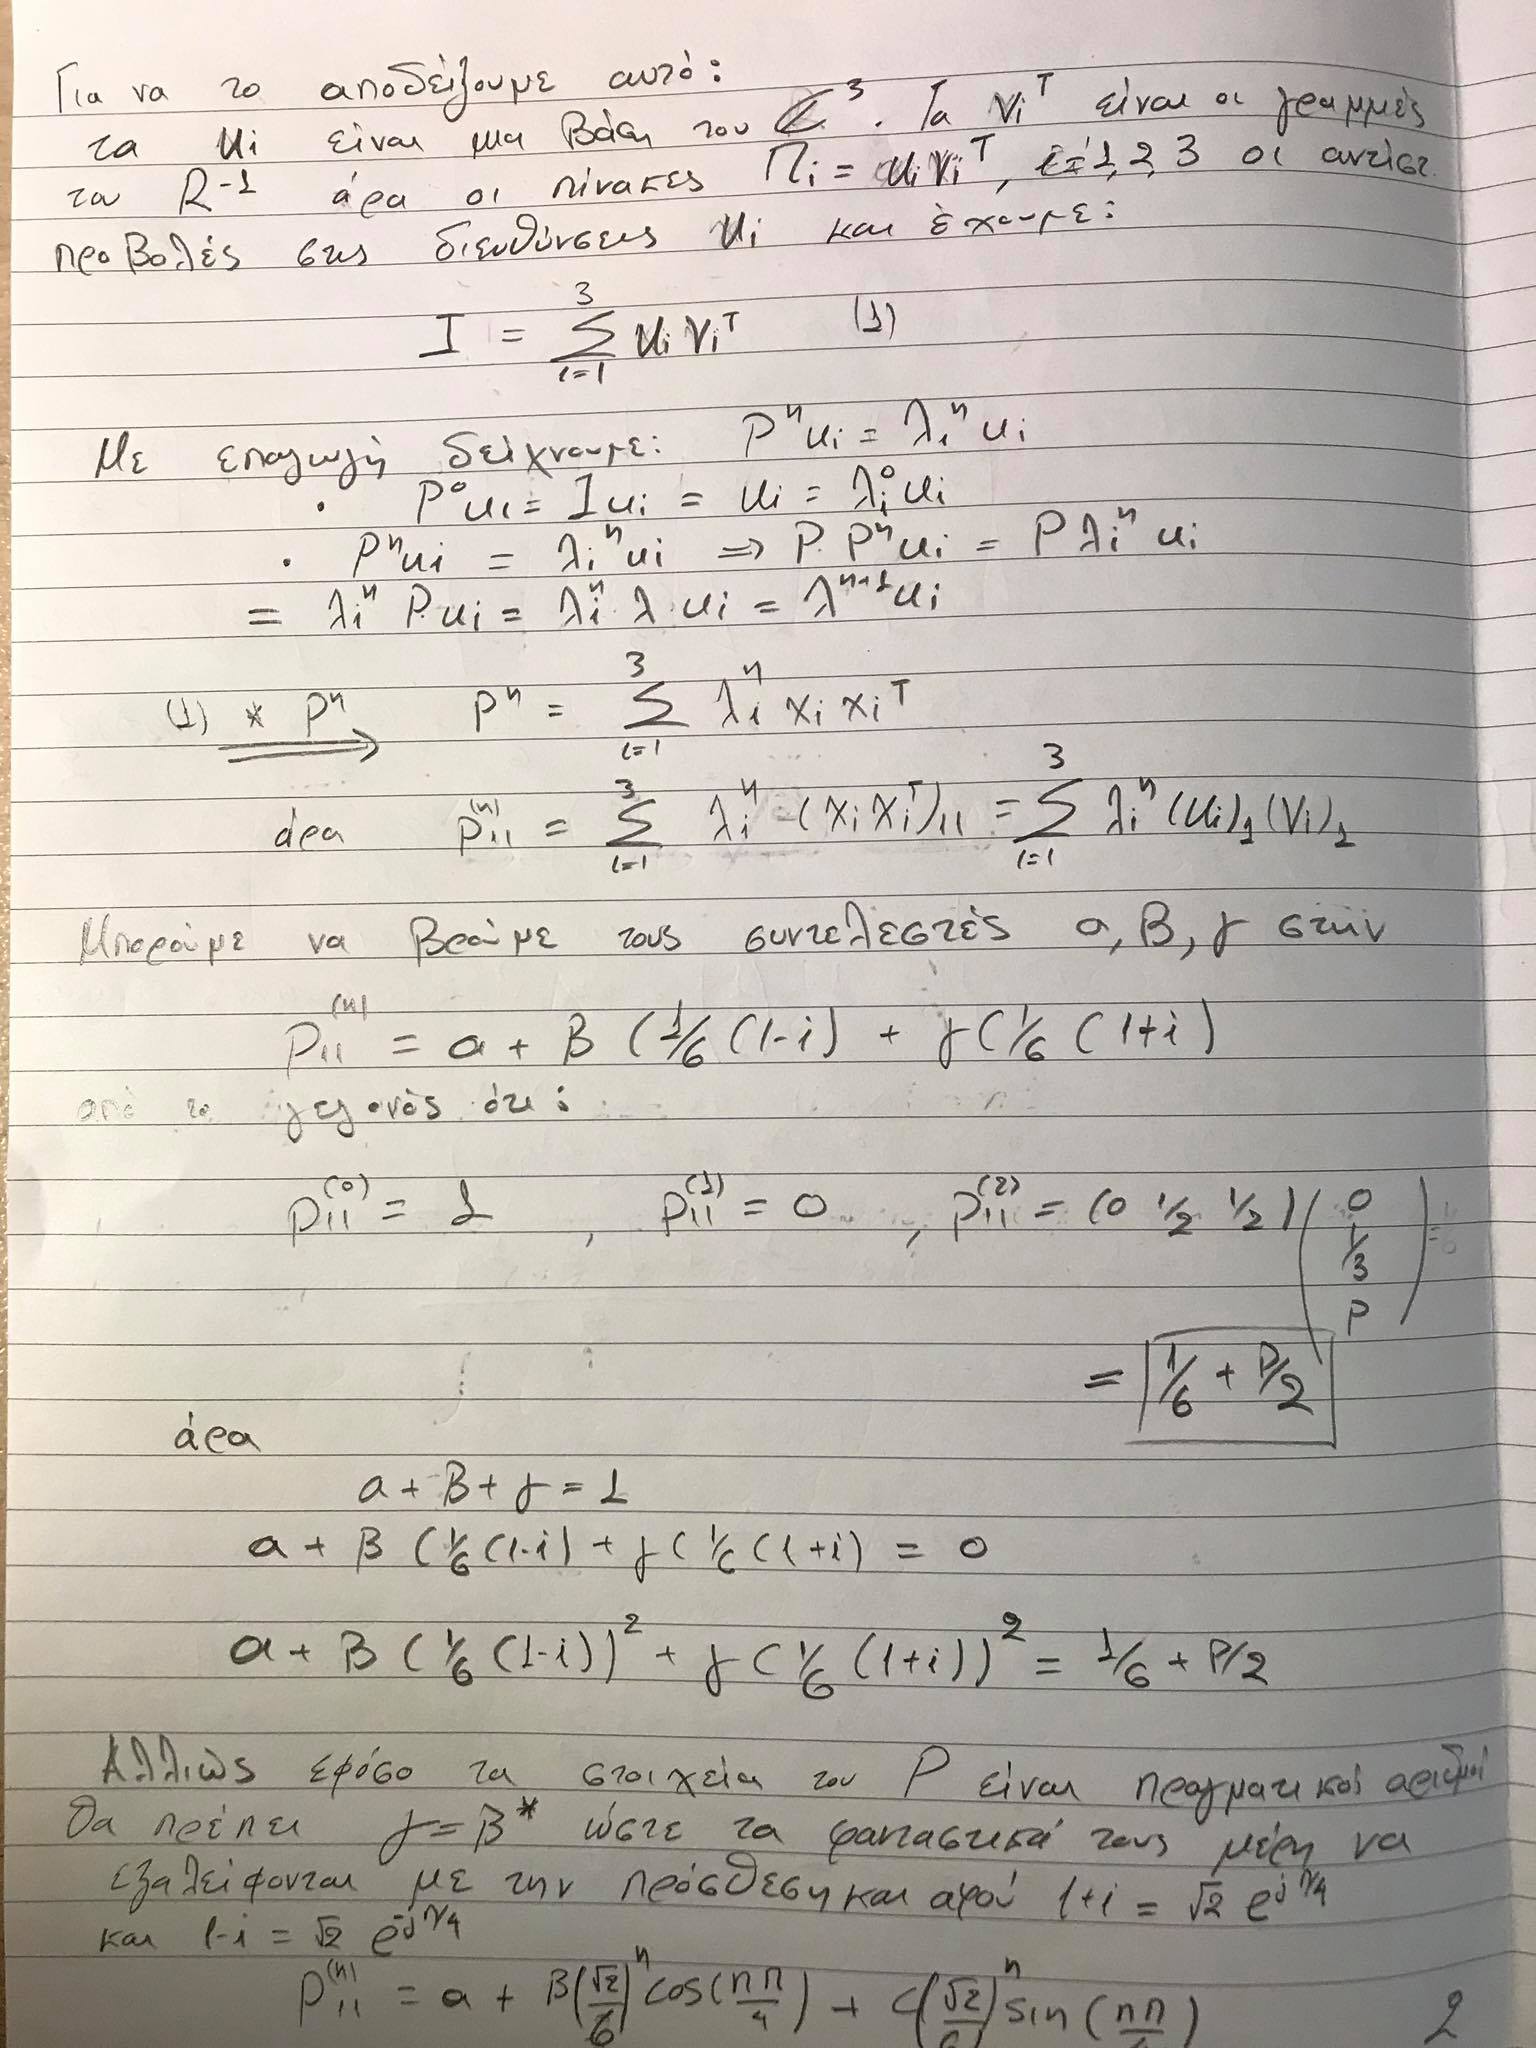 Για να το αποδείξουμε αυτό:
τα ui είναι μια βάση του ℂ³. Τα viᵀ είναι οι γραμμές
του R⁻¹ άρα οι πίνακες Πi = uiviᵀ, i=1,2,3 οι αντιστ.
προβολές στις διευθύνσεις ui και έχουμε:
I = Σ_{i=1}^{3} ui viᵀ (1)
Με επαγωγή δείχνουμε: Pⁿui = λiⁿ ui
· P⁰ui = Iui = ui = λi⁰ ui
· Pⁿui = λiⁿui ⇒ P. Pⁿui = Pλiⁿ ui
= λiⁿ P.ui = λiⁿ. λ ui = λⁿ⁺¹ui
(1) * Pⁿ ⟹ Pⁿ = Σ_{i=1}^{3} λiⁿ xi xiᵀ
άρα P₁₁⁽ⁿ⁾ = Σ_{i=1}^{3} λiⁿ (xi xiᵀ)₁₁ = Σ_{i=1}^{3} λiⁿ (ui)₁ (vi)₁
Μπορούμε να βρούμε τους συντελεστές α, β, γ στην
P₁₁⁽ⁿ⁾ = α + β (1/6 (1-i) + γ(1/6 (1+i)
από το γεγονός ότι:
P₁₁⁽⁰⁾ = 1 , P₁₁⁽¹⁾ = 0 , P₁₁⁽²⁾ = (0 1/2 1/2) (0
1/3
P)
= 1/6 + P/2
άρα
α + β + γ = 1
α + β (1/6 (1-i) + γ(1/6 (1+i) = 0
α + β (1/6 (1-i))² + γ(1/6 (1+i))² = 1/6 + P/2
Αλλιώς εφόσο τα στοιχεία του P είναι πραγματικοί αριθμοί
θα πρέπει γ = β* ώστε τα φανταστικά τους μέρη να
εξαλείφονται με την πρόσθεση και αφού 1+i = √2 e^{jπ/4}
και 1-i = √2 e^{-jπ/4}
P₁₁⁽ⁿ⁾ = α + β(√2/6)ⁿ cos(nπ/4) + C(√2/6)ⁿ sin(nπ/4)
2